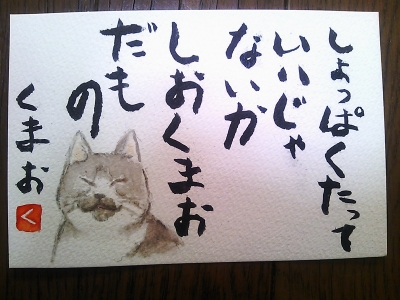 しょっぱくたって
いいじゃ
ないか
しおくまお
だもの
くまお
く